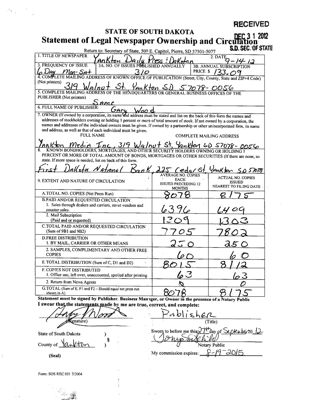 RECEIVED
DEC 31 2012
S.D. SEC. OF STATE
STATE OF SOUTH DAKOTA
Statement of Legal Newspaper Ownership and Circulation
Return to: Secretary of State, 500 E. Capitol, Pierre, SD 57501-5077
1. TITLE OF NEWSPAPER Yankton Daily Press & Dakotan
2. DATE 9-14-12
3. FREQUENCY OF ISSUE 6 Day Mon-Sat
3A. NO. OF ISSUES PUBLISHED ANNUALLY 310
3B. ANNUAL SUBSCRIPTION PRICE $ 133.09
4. COMPLETE MAILING ADDRESS OF KNOWN OFFICE OF PUBLICATION (Street, City, County, State and ZIP+4 Code) (Not printer)
319 Walnut St. Yankton SD 57078-0056
5. COMPLETE MAILING ADDRESS OF THE HEADQUARTERS OR GENERAL BUSINESS OFFICES OF THE PUBLISHER (Not printer)
Same
6. FULL NAME OF PUBLISHER: Gary Wood
7. OWNER (If owned by a corporation, its name and address must be stated and list on the back of this form the names and addresses of stockholders owning or holding 1 percent or more of total amount of stock. If not owned by a corporation, the names and addresses of the individual owners must be given. If owned by a partnership or other unincorporated firm, its name and address, as well as that of each individual must be given.
FULL NAME COMPLETE MAILING ADDRESS
Yankton Media Inc, 319 Walnut St, Yankton SD 57078-0056
8. KNOWN BONDHOLDERS, MORTGAGES, AND OTHER SECURITY HOLDERS OWNING OR HOLDING 1 PERCENT OR MORE OF TOTAL AMOUNT OF BONDS, MORTGAGES OR OTHER SECURITIES (If there are none, so state. If more space is needed, list on back of this form.
First Dakota National Bank, 225 Cedar St, Yankton SD 57078
9. EXTENT AND NATURE OF CIRCULATION
AVERAGE NO. COPIES EACH ISSUED PRECEDING 12 MONTHS
ACTUAL NO. COPIES ISSUED NEAREST TO FILING DATE
A. TOTAL NO. COPIES (Net Press Run) 8078 8175
B. PAID AND/OR REQUESTED CIRCULATION
1. Sales through dealers and carriers, street vendors and counter sales 6396 6499
2. Mail Subscription (Paid and/or requested) 1309 1303
C. TOTAL PAID AND/OR REQUESTED CIRCULATION (Sum of 9B1 and 9B2) 7705 7802
D. FREE DISTRIBUTION
1. BY MAIL, CARRIER OR OTHER MEANS 250 250
2. SAMPLES, COMPLIMENTARY AND OTHER FREE COPIES 60 60
E. TOTAL DISTRIBUTION (Sum of C, D1 and D2) 8015 8112
F. COPIES NOT DISTRIBUTED
1. Office use, left over, unaccounted, spoiled after printing 63 63
2. Return from News Agents 0
G. TOTAL (Sum of E, F1 and F2 - Should equal net press run shown in A) 8078 8175
Statement must be signed by Publisher, Business Manager, or Owner in the presence of a Notary Public
I swear that the statements made by me are true, correct, and complete:
Gary Wood Publisher
(Signature) (Title)
State of South Dakota )
County of Yankton )
Sworn to before me this 27th day of September, 12
Notary Public
(Seal)
My commission expires: 8-19-2015
Form: SOS REC 051 7/2004